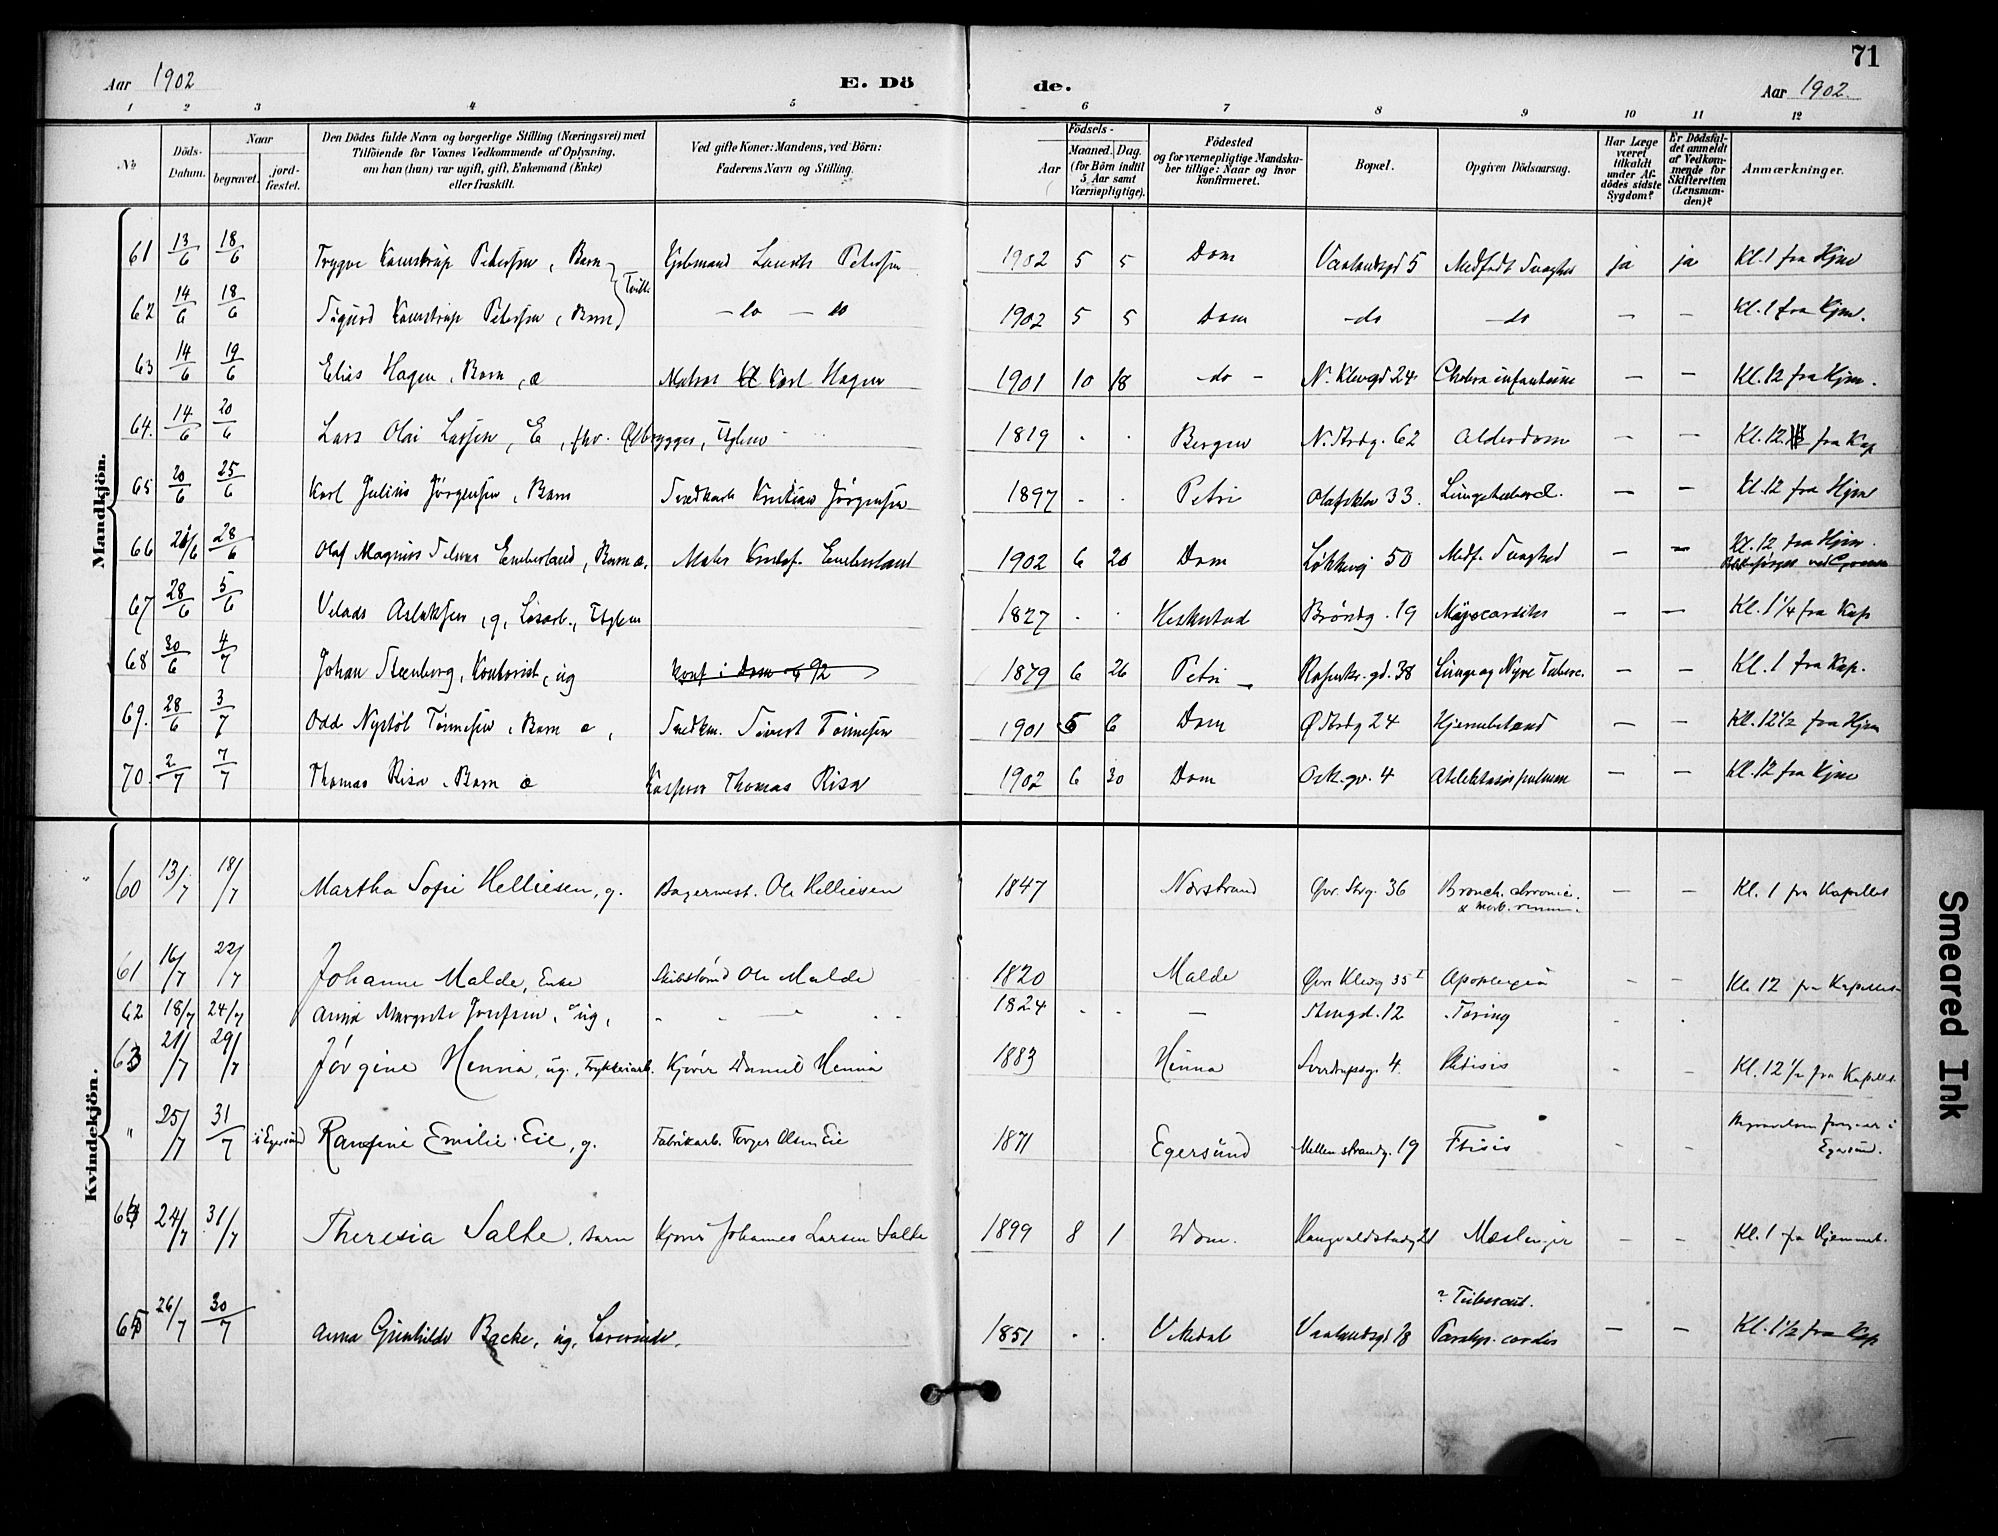 71
Aar 1902
E. Dö
de.
Aar 1902.
1 2 3 4 5 6 7 8 9 10 11 12
No
Döds-
Datum.
Naar
begravet.
jord-
fæstet.
Den Dödes fulde Navn og borgerlige Stilling (Næringsvei) med
Tilföiende for Voxnes Vedkommende af Oplysning,
om han (hun) var ugift, gift, Enkemand (Enke)
eller fraskilt.
Ved gifte Koner: Mandens, ved Börn:
Faderens Navn og Stilling.
Födsels-
Aar
Maaned. Dag.
(for Börn indtil
5 Aar samt
Værnepligtige).
Födested
og for værnepligtige Mandska-
ber tillige: Naar og hvor
konfirmeret.
Bopæl.
Opgiven Dödsaarsag.
Har Læge
været
tilkaldt
under Af-
dödes sidste
Sygdom?
Er Dödsfal-
det anmeldt
af Vedkom-
mende for
Skifteretten
(Lensman-
den)?
Anmærkninger.
Mandkjön.
61 13/6 18/6 Trygve Kamstrup Petersen, Barn Laurits Petersen 1902 5 5 Dom 5 Medfødt Svaghed ja ja Kl. 1 fra Hjm
62 14/6 18/6 Sigurd Kamstrup Petersen, Barn Tvill. - do - do 1902 5 5 Dom - do - do - - Kl. 1 fra Hjm.
63 14/6 19/6 Elias Hagen, Barn, æ Matros Karl Hagen 1901 10 18 - do - N. Klevgd 24 Cholera infantum - - Kl. 12 fra Hjm.
64. 14/6 20/6 Lars Olai Larsen, E, fhv. Ølbrygger, 1819 . . Bergen N. Strdg. 62 Alderdom - - Kl. 12 fra Kap
65 20/6 25/6 Karl Julius Jörgensen, Barn Snedkerk Kristian Jörgensen 1897 . . Petri Olafsklev 33. - - Kl. 12 fra Hjm
66 28/6 Olaf Magnus Emberland, Barn æ. Emberland 1902 6 20 Dom Løkkevj 50 Medf. Svaghed - - Kl. 12 fra Hjm.
67 28/6 5/6 Aslaksen, g, Løsarb., 1827 . . Heskestad Bröndg. 19 Myocarditis - - Kl. 1 1/4 fra Kap
68 30/6 4/7 Johan Steenberg, Kontorist, ug Konf i Dom 92 1879 6 26 Petri 38 Lunge og Nyre Tuberc. - - Kl. 1 fra Kap.
69. 28/6 3/7 Odd Nystöl Tönnesen, Barn æ, Snedkm. Sivert Tönnesen 1901 5 6 Dom Ø Strdg 24 - - Kl. 12 1/2 fra Hjm
70. 2/7 7/7 Thomas Risa, Barn æ Thomas Risa 1902 6 30 Dom 4 - - Kl. 12 fra Hjm
Kvindekjön.
60 13/7 18/7 Martha Sofie Helliesen, g. Ole Helliesen 1847 Nærstrand Øvr. Strg. 36 Bronch. chronic. - - Kl. 1 fra Kapellet
61 16/7 22/7 Johanne Malde, Enke Ole Malde 1820 Malde Øvre Klevg 35 I Apoplexia - - Kl. 12 fra Kapellet
62 18/7 24/7 Anna Margrete Josefsen, ug, 1824 . . - Stengd. 12 Tæring
63 21/7 29/7 Jörgine Hinna, ug., Kjører Daniel Hinna 1883 Hinna Sverdrupsg. 4. Phtisis - - Kl. 12 1/2 fra Kapellet
" 25/7 31/7 i Egersund Ransine Emilie Eie, g. Fabrikarb. Torger Olsen Eie 1871 Egersund Mellem strandg. 19 Ftisis - - Egersund.
64 24/7 31/7 Theresia Salte, barn Kjører Johannes Larsen Salte 1899 8 1 Dom. Mæslinger - - Kl. 1 fra Hjemmet.
65 26/7 30/7 Anna Gunhilde Backe, ug, 1851 . . Vikedal ? Tubercul. Paralys. cordis - - Kl. 1 1/2 fra Kap
Smeared Ink